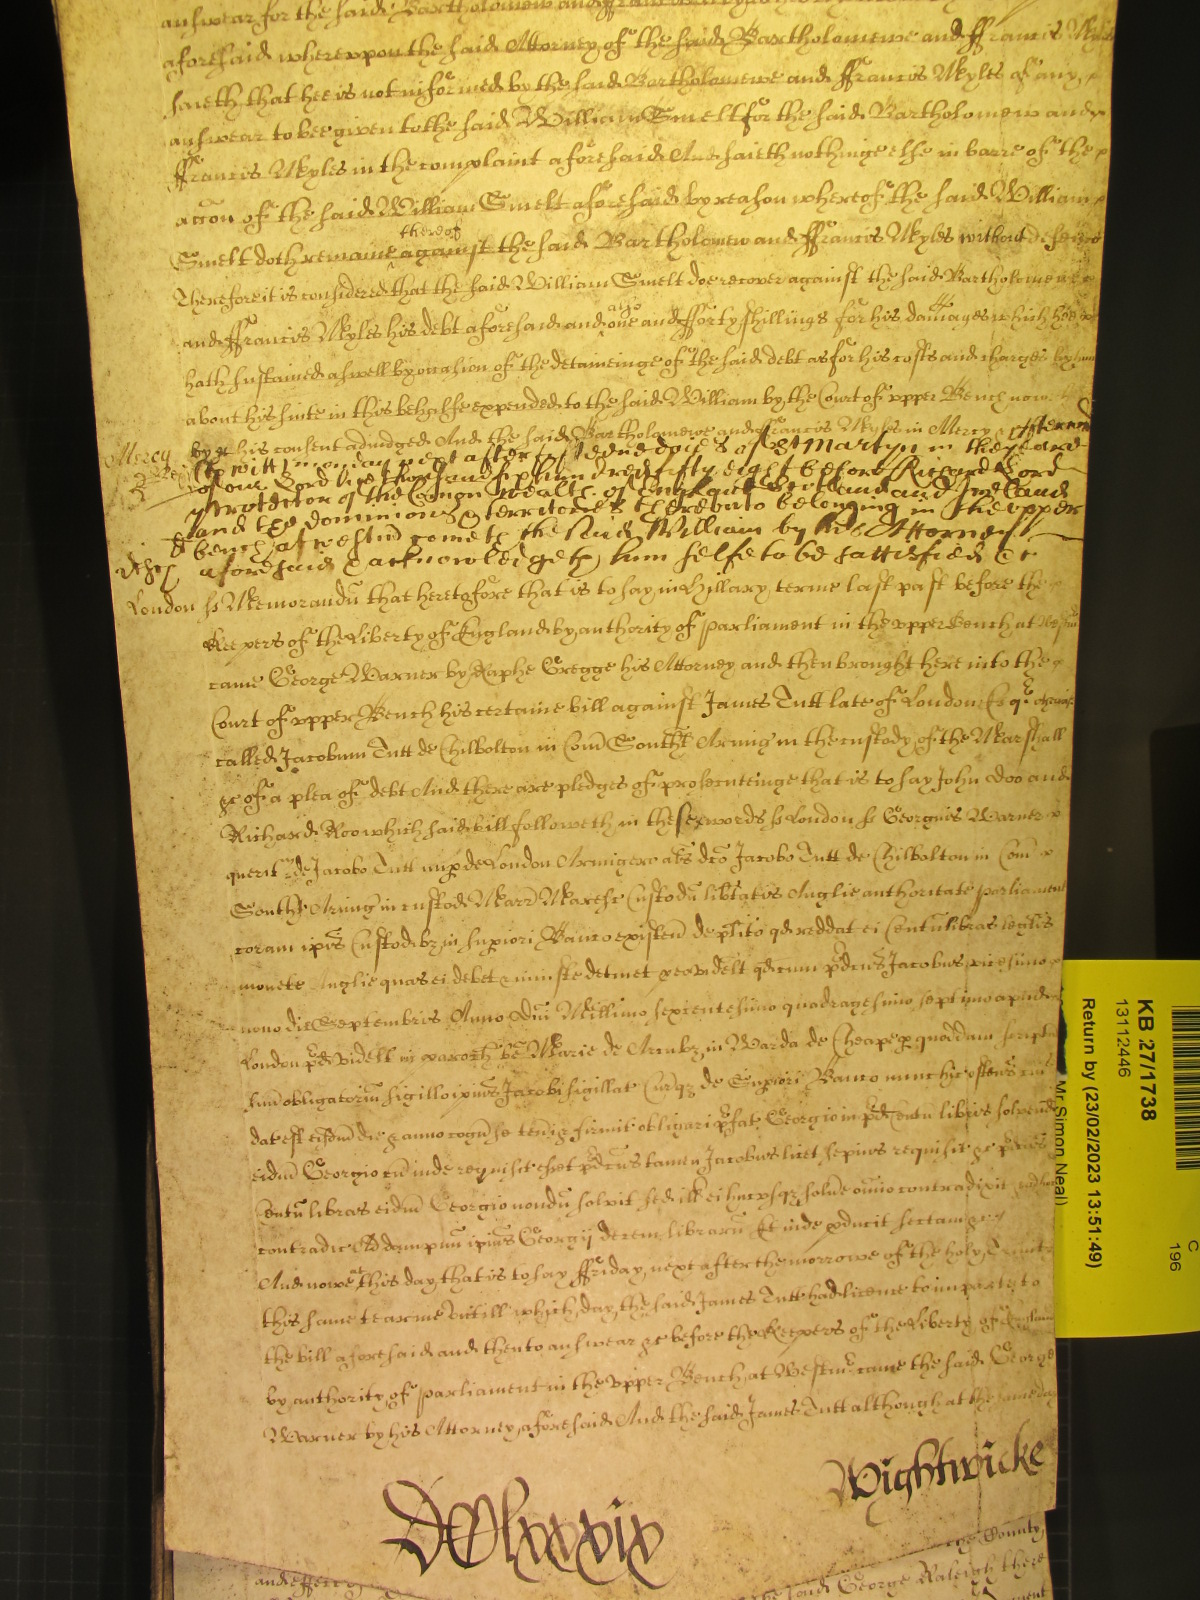 answear for the said Bartholomew and ffrancis
aforesaid wherevpon the said Attorney of the said Bartholomewe and ffrancis Myles
saieth that hee is not informed by the said Bartholomewe and ffrancis Myles of any
answear to bee given to the said William Smelt for the said Bartholomew and
ffrancis Myles in the complaint aforesaid And saieth nothinge else in barre of the
accon of the said William Smelt aforesaid by reason whereof the said William
Smelt doth remaine thereof against the said Bartholomew and ffrancis Myles without defence
Therefore it is considered that the said William Smelt doe recover against the said Bartholomewe
and ffrancis Myles his debt aforesaid and also one and fforty shillings for his damages which hee
hath sustained aswell by occasion of the detaineinge of the said debt as for his costs and charges by him
about his suite in this behalfe expended to the said William by the Court of vpper Bench now
by his consent adiudged And the said Bartholomewe and ffrancis Myles in Mercy &c Afterward
Mercy
to witt monday next after of St Martyn in the yeare
of our Lord one thousand six hundred fifty eight before Richard Lord
protector of the Comon wealth of England Scotland and Ireland
and the dominions & territories therevnto belonging in the vpper
bench at westm cometh the said William by his Attorney
aforesaid & acknowledgeth him selfe to be sattisfied &c
London ss Memorandu that heretofore that is to say in Hillary terme last past before the
Keepers of the Liberty of England by authority of parliament in the vpper Bench at Westm
came George Warner by Raphe Gregge his Attorney and then brought here into the
Court of vpper Bench his certaine bill against James Tutt late of London Esqr otherwise
called Jacobum Tutt de Chilbolton in Com Southt Armig in the custody of the Marshall
&c of a plea of debt And there are pledges of prosecuteinge that is to say John Doo and
Richard Roo which said bill followeth in these words ss London ss Georgius Warner
querit de Jacobo Tutt nup de London Armigero als dco Jacobo Tutt de Chilbolton in Com
Southt Armig in custod Marr Maresc Custodu libtatis Anglie authoritate parliament
coram ipis Custodibz in supiori Banco existen de plito qd reddat ei Centu libras legalis
monete Anglie quas ei debet & iniuste detinet &c eo videlt qd cum pdcus Jacobus vicesimo
nono die Septembris Anno Dni Millimo sexcentesimo quadragesimo septimo apud
London pd videlt in paroch be Marie de Arcubz in Warda de Cheape p quoddam scriptu
suu obligatoriu sigillo ipius Jacobi sigillat Curqz de Supiori Banco nunc hic ostens cuius
dat est eisdm die & anno cogn se teneri & firmit obligari pfat Georgio in pd Centu libris solvend
eidm Georgio cu inde requisit esset pdcus tamen Jacobus licet sepius requisit &c pdcas
Centu libras eidm Georgio nondu solvit sed ill ei hucvsqz solve omio contradixit
contradic Ad dampnu ipius Georgij decem libraru Et inde pducit sectam &c
And nowe att this day that is to say ffriday next after the morrowe of the holy Trinity
this same tearme vntill which day the said James Tutt had licence to imparle to
the bill aforesaid and then to answear &c before the Keepers of the Liberty of England
by authority of parliament in the vpper Bench at Westm came the said George
Warner by his Attorney aforesaid And the said James Tutt although at the same day
Wightwicke
DClxxxix
the County
and
the said George Raleigh there
KB 27/1738
13112446
Return by (23/02/2023 13:51:49)
Mr Simon Neal)
C
196